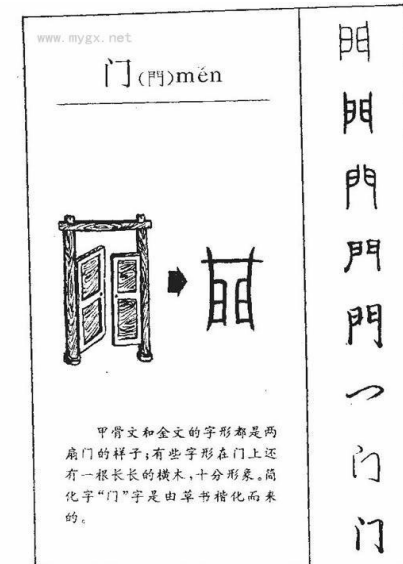 www.mygx.net
门(門)mén
甲骨文和金文的字形都是两
扇门的样子;有些字形在门上还
有一根长长的横木,十分形象。简
化字“门”字是由草书楷化而来
的。
門
門
門
門
門
门
门